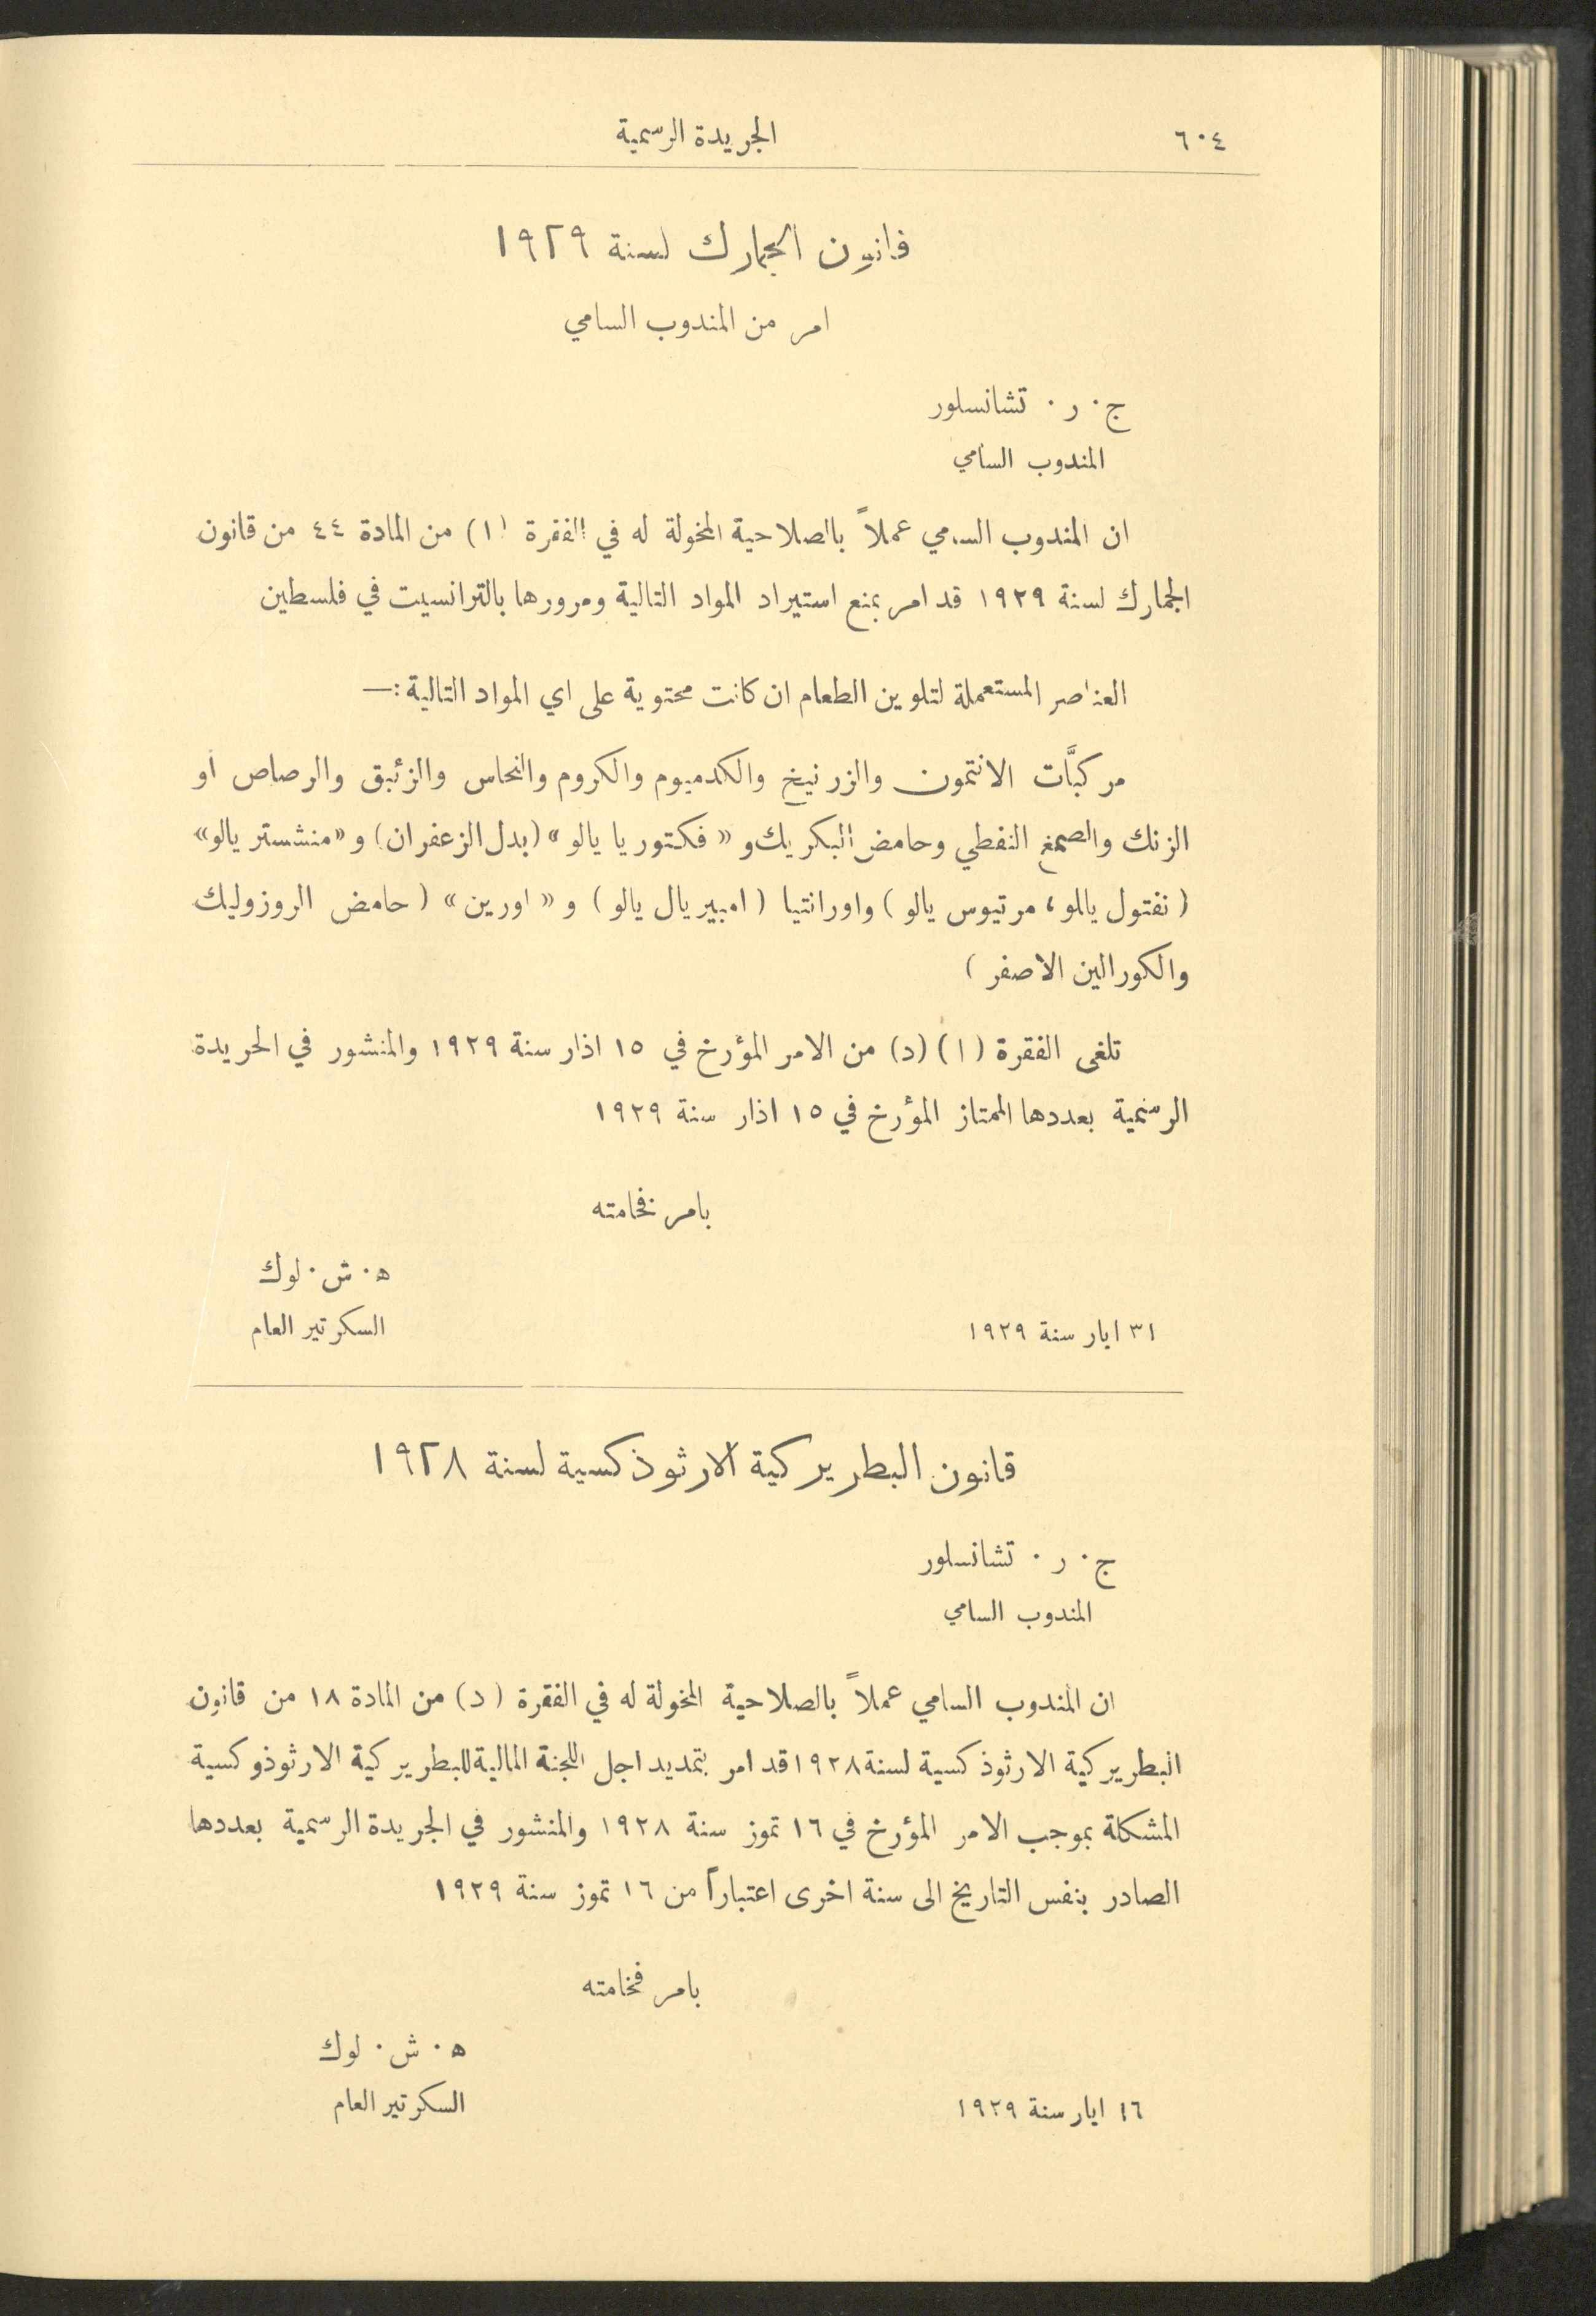 ٦٠٤
الجريدة الرسمية
قانون الجمارك لسنة ١٩٢٩
امر من المندوب السامي
ج٠ ر٠ تشانسلور
المندوب السامي
ان المندوب السامي عملاً بالصلاحية المخولة له في الفقرة (١) من المادة ٤٤ من قانون
الجمارك لسنة ١٩٢٩ قد امر بمنع استيراد المواد التالية ومرورها بالترانسيت في فلسطين
العناصر المستعملة لتلوين الطعام ان كانت محتوية على اي المواد التالية :—
مركبَّات الانتمون والزرنيخ والكدميوم والكروم والنحاس والزئبق والرصاص او
الزنك والصمغ النفطي وحامض البكريك و « فكتوريا يالو » (بدل الزعفران) و «منشستر يالو»
( نفتول ياللو ، مرتيوس يالو ) واورانتيا ( امبيريال يالو ) و « اورين » ( حامض الروزوليك
والكورالين الاصفر )
تلغى الفقرة (ا) (د) من الامر المؤرخ في ١٥ اذار سنة ١٩٢٩ والمنشور في الجريدة
الرسمية بعددها الممتاز المؤرخ في ١٥ اذار سنة ١٩٢٩
بامر فخامته
ه٠ ش٠ لوك
السكرتير العام
٣١ ايار سنة ١٩٢٩
قانون البطريركية الارثوذكسية لسنة ١٩٢٨
ج٠ ر٠ تشانسلور
المندوب السامي
ان المندوب السامي عملاً بالصلاحية المخولة له في الفقرة (د) من المادة ١٨ من قانون
البطريركية الارثوذكسية لسنة ١٩٢٨ قد امر بتمديد اجل اللجنة المالية للبطريركية الارثوذوكسية
المشكلة بموجب الامر المؤرخ في ١٦ تموز سنة ١٩٢٨ والمنشور في الجريدة الرسمية بعددها
الصادر بنفس التاريخ الى سنة اخرى اعتباراً من ١٦ تموز سنة ١٩٢٩
بامر فخامته
ه٠ ش٠ لوك
السكرتير العام
١٦ ايار سنة ١٩٢٩